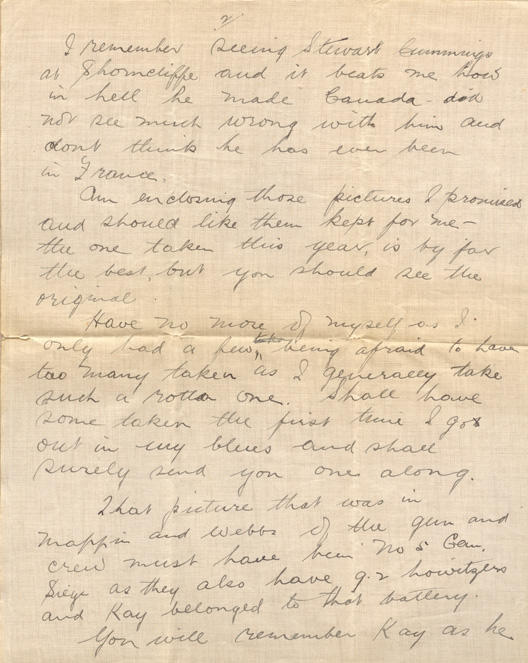 2/
I remember seeing Stewart Cummings
at Shorncliffe and it beats me how
in hell he made Canada - did
not see much wrong with him and
dont think he has ever been
in France.
Am enclosing those pictures I promised
and should like them kept for me -
the one taken this year, is by far
the best, but you should see the
original.
Have no more of myself as I
only had a few being afraid to have
too many taken as I generally take
such a rotten one. Shall have
some taken the first time I get
out in my blues and shall
surely send you one along.
That picture that was in
Mappin and Webbs of the gun and
crew must have been No 5 Can.
Siege as they also have 9.2 howitzers
and Kay belonged to that battery.
You will remember Kay as he